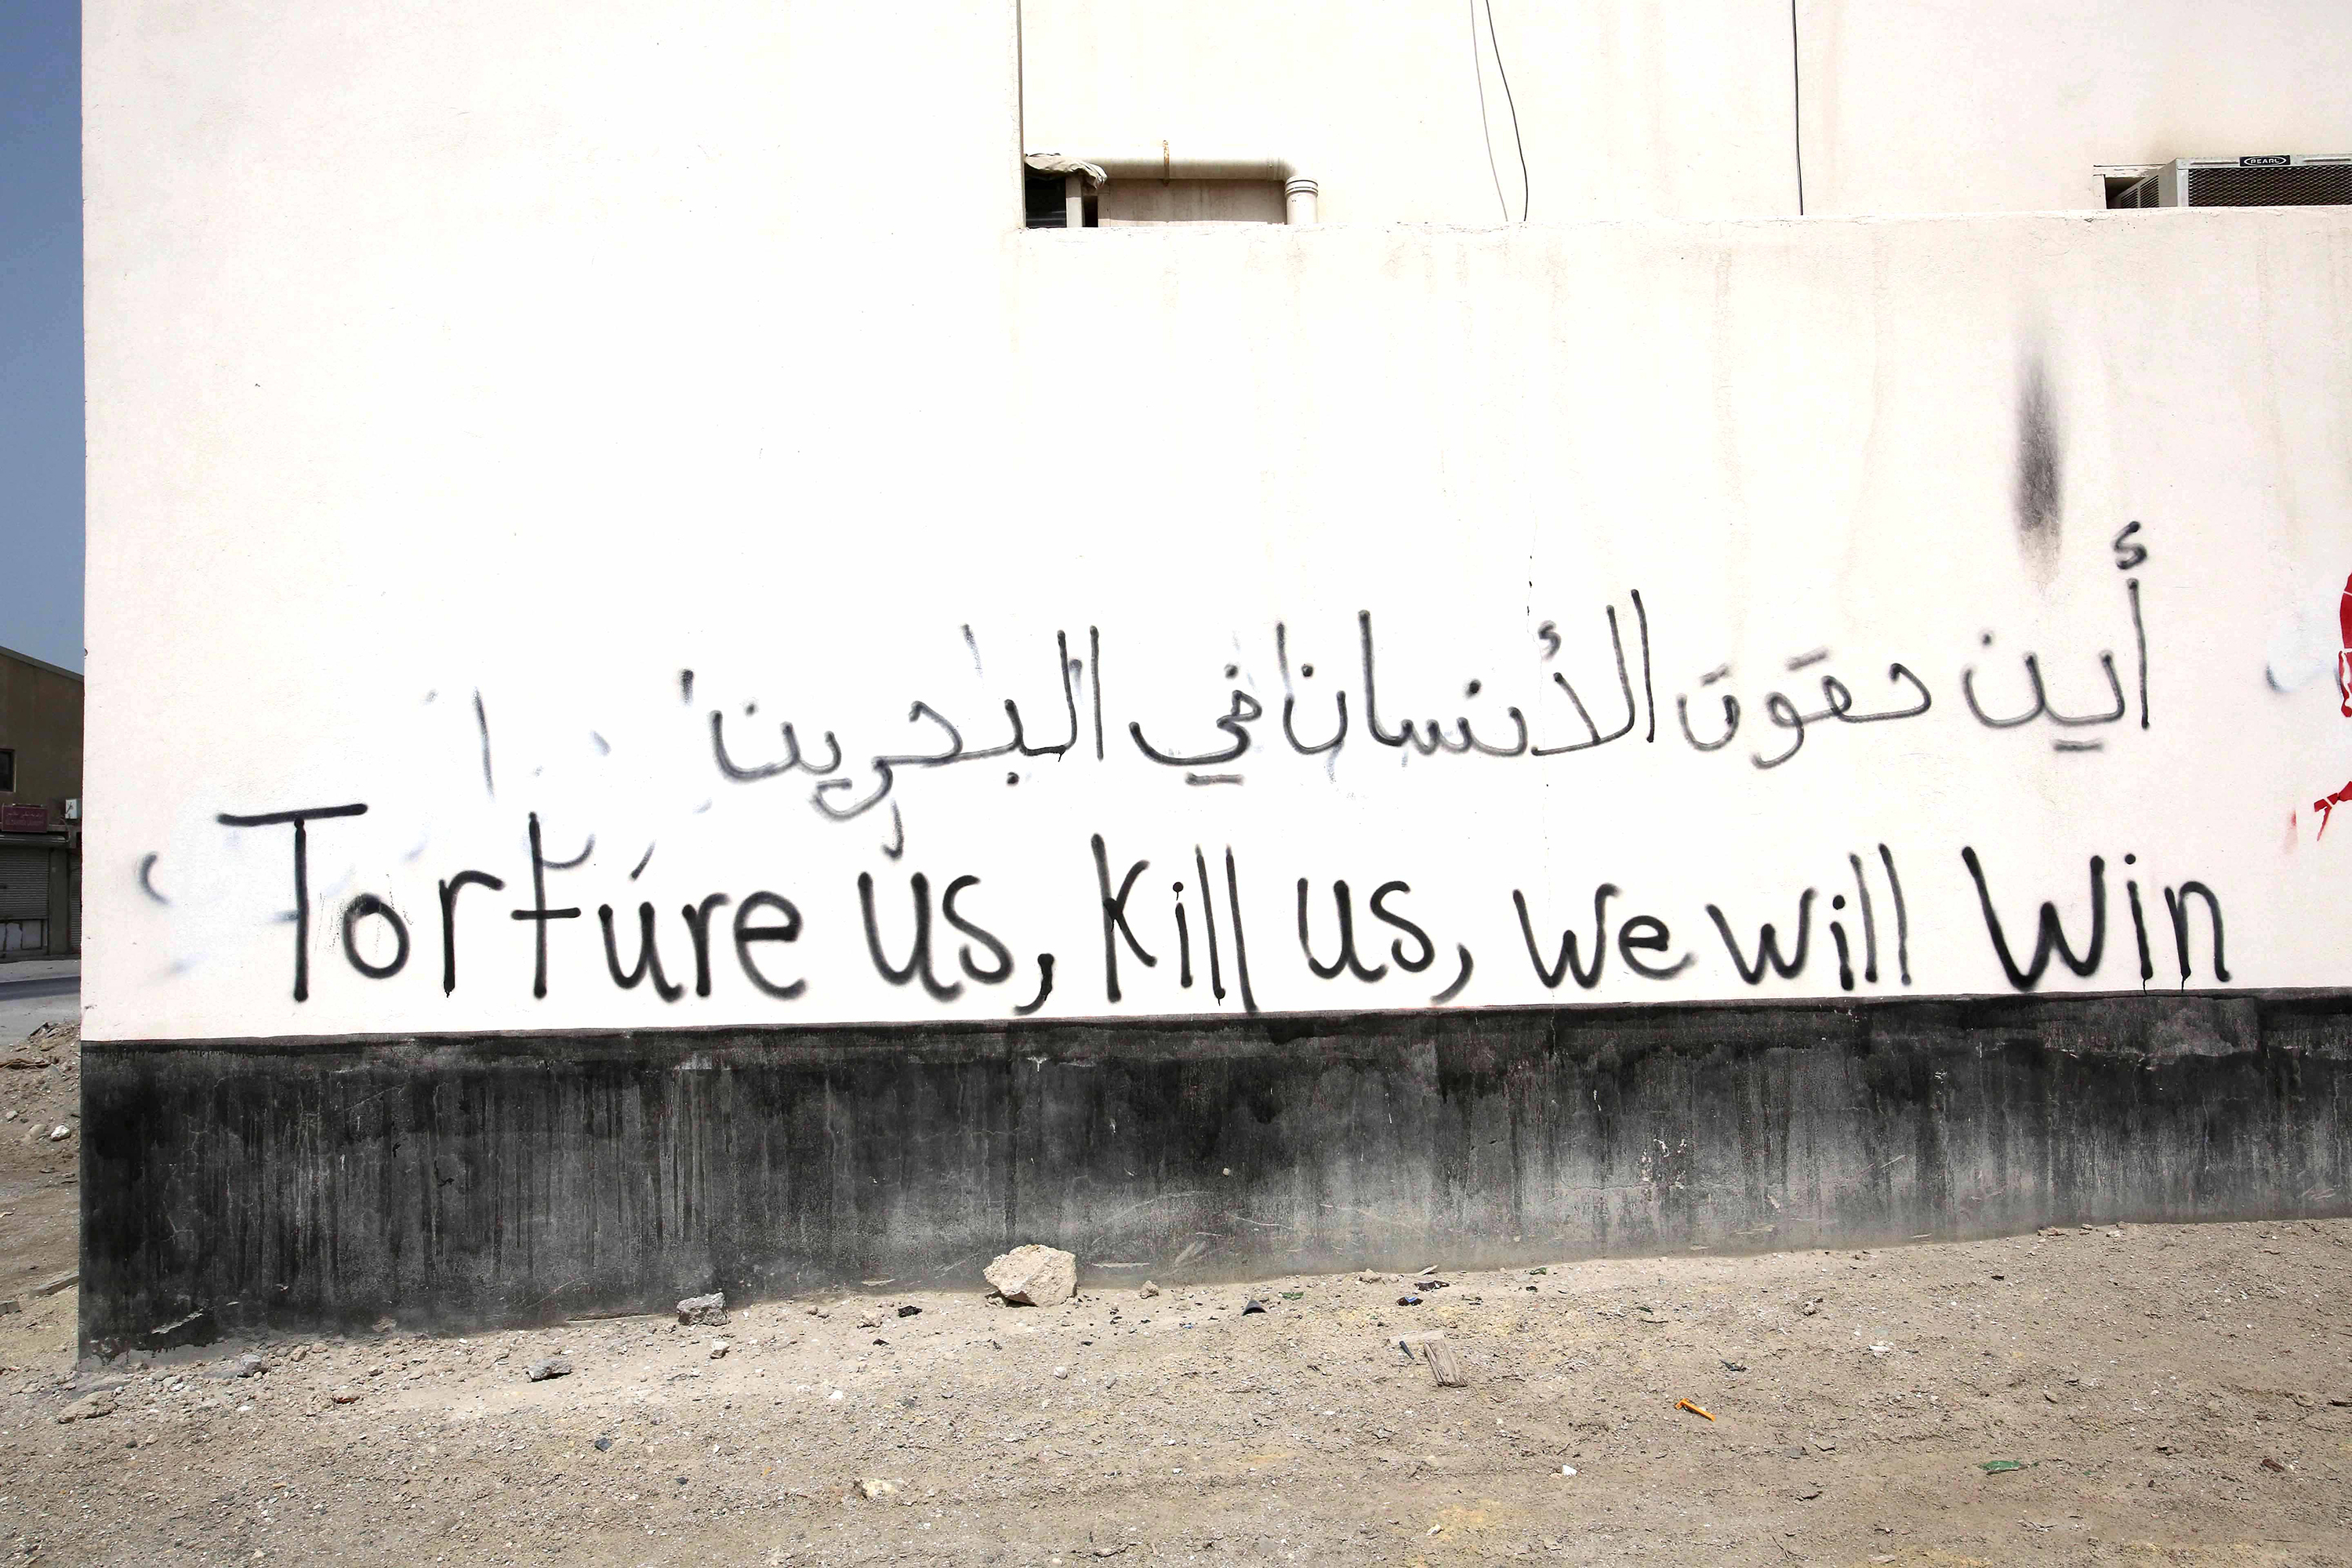 PEARL
أين حقوق الأنسان في البحرين
Torture us, kill us, we will win